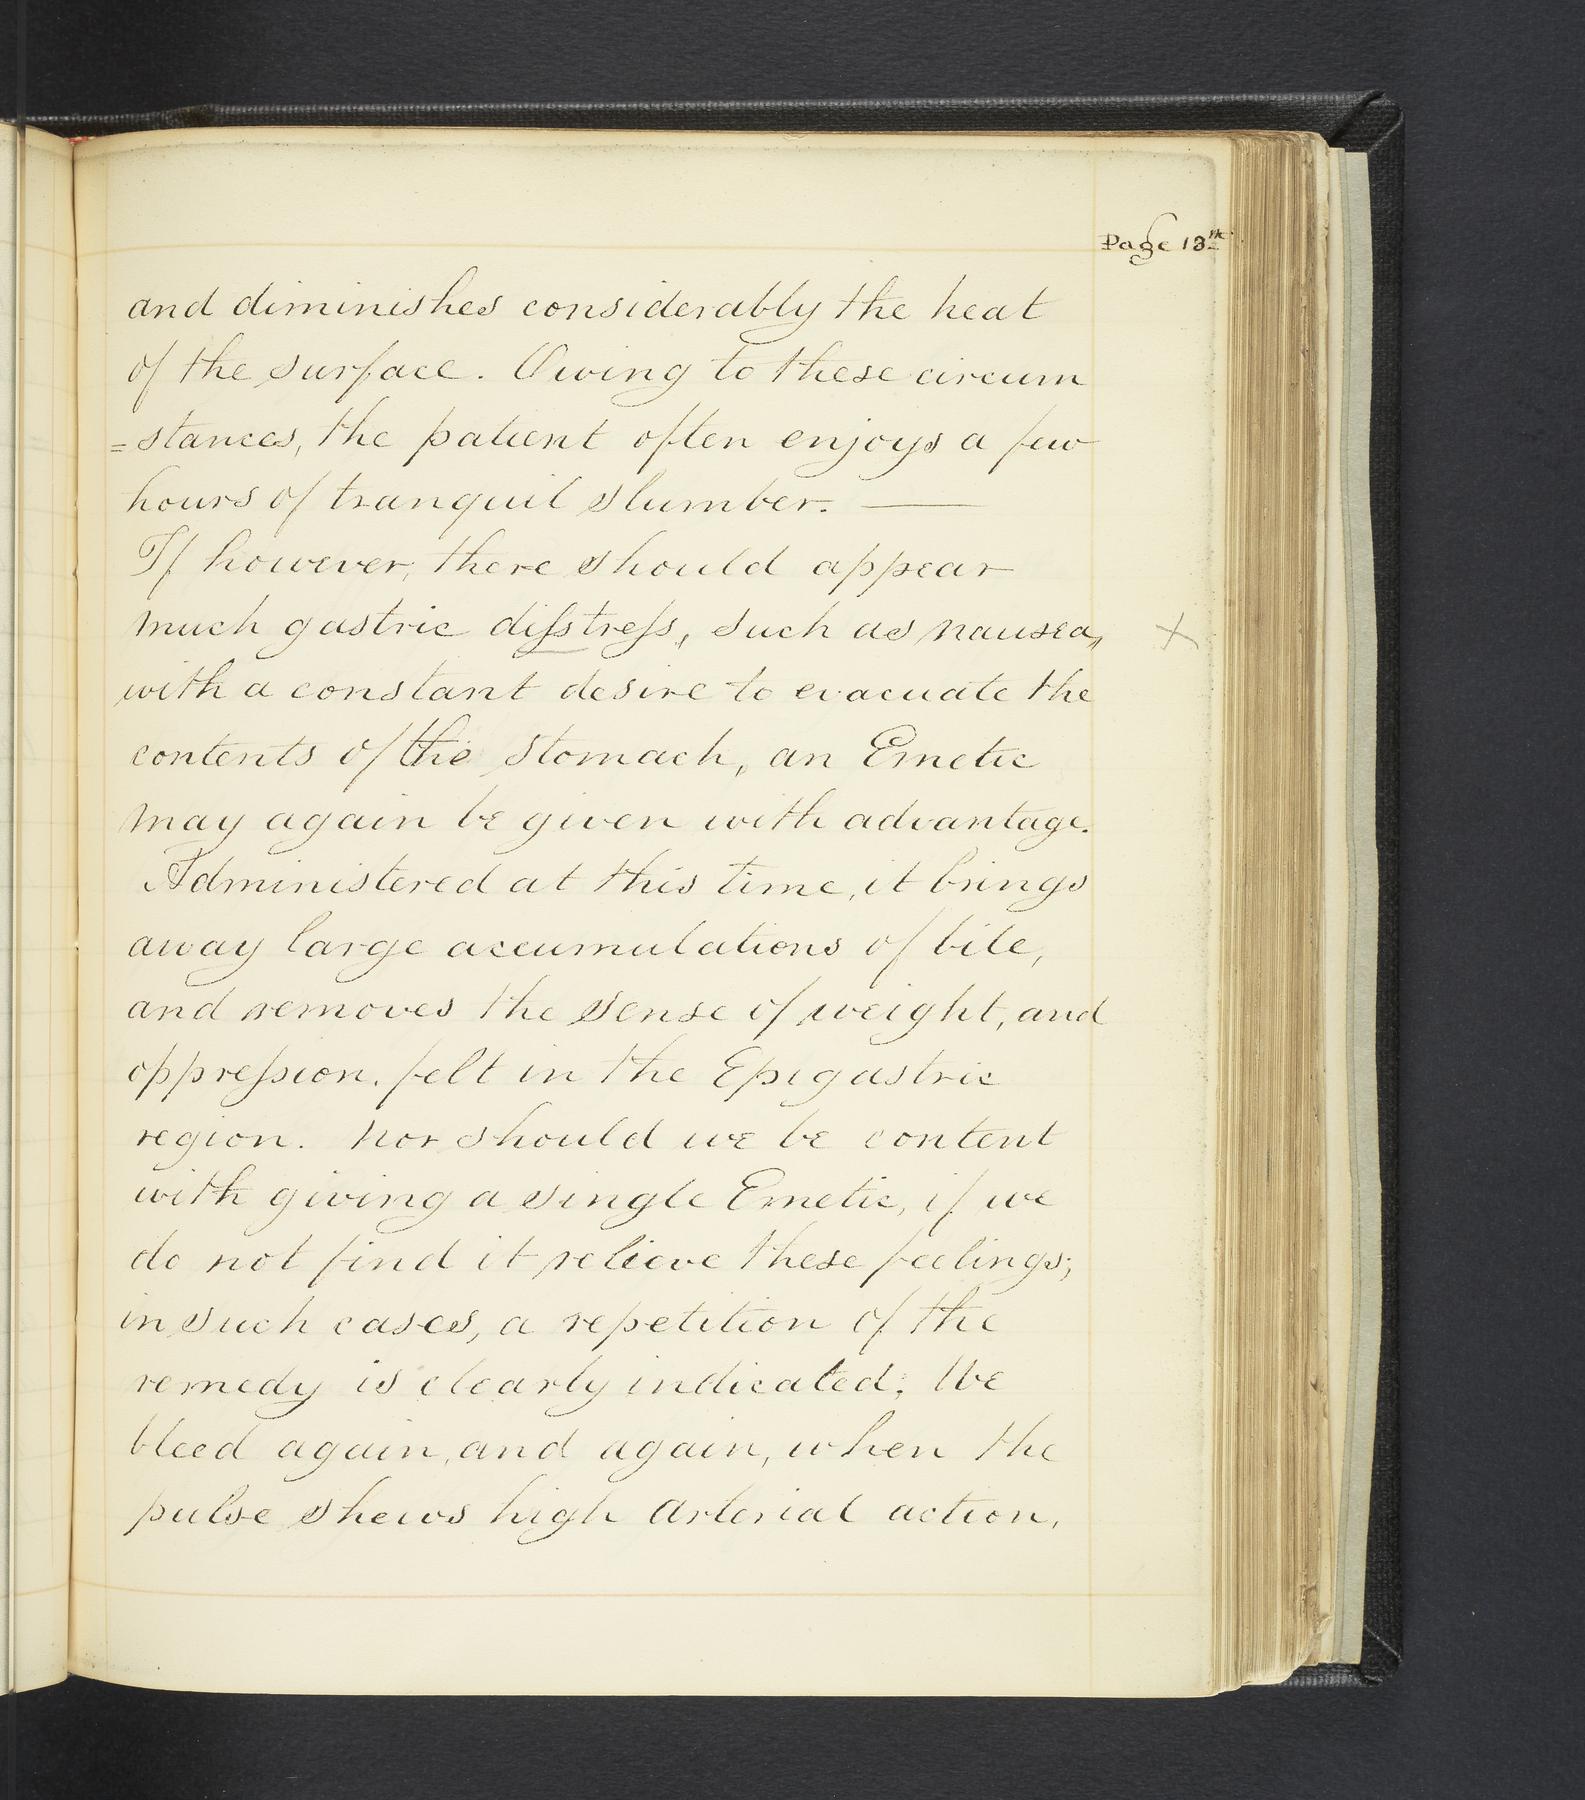 Page 13th
and diminishes considerably the heat
of the surface. Owing to these circum
=stances, the patient often enjoys a few
hours of tranquil slumber. —
If however, there should appear
much gastric disstress, such as nausea,
with a constant desire to evacuate the
contents of the stomach, an Emetic
may again be given with advantage.
Administered at this time, it brings
away large accumulations of bile,
and removes the sense of weight, and
oppression. felt in the Epigastric
region. Nor should we be content
with giving a single Emetic, if we
do not find it relieve these feelings;
in such cases, a repetition of the
remedy is clearly indicated; We
bleed again, and again, when the
pulse shews high Arterial action,